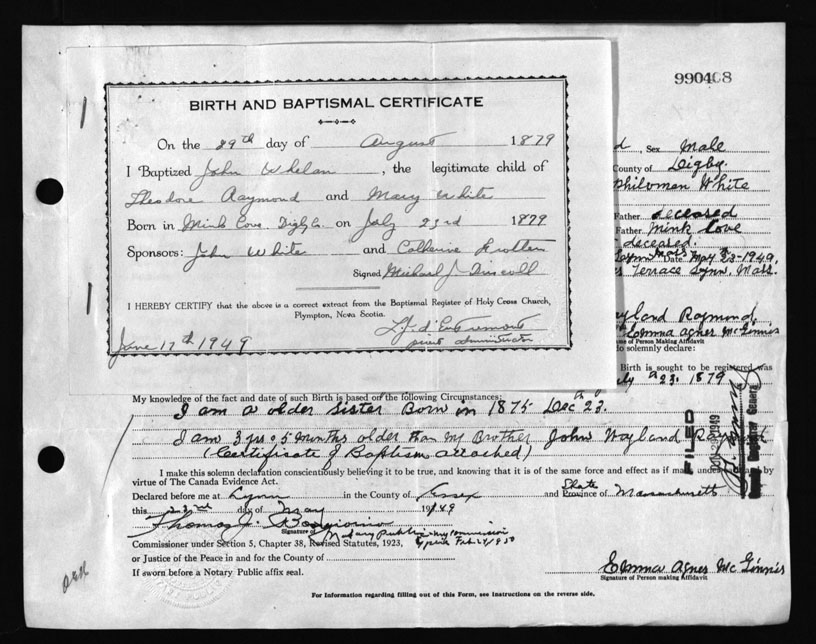 990468
BIRTH AND BAPTISMAL CERTIFICATE
On the 29th day of August 1879
I Baptized John Whelan, the legitimate child of
Theodore Raymond and Mary White
Born in Mink Cove Digby Co. on July 23rd 1879
Sponsors: John White and Catherine
Signed Michael J. Driscoll
I HEREBY CERTIFY that the above is a correct extract from the Baptismal Register of Holy Cross Church,
Plympton, Nova Scotia.
L.J. d'Entremont
priest administrator
June 17th 1949
d, Sex Male
County of Digby
Philomen White
Father deceased
Father Mink Cove
deceased.
Lynn Mass Date May 23-1949,
Terrace Lynn, Mass.
yland Raymond,
Emma Agnes McGinnis
me of Person Making Affidavit
do solemnly declare:
Birth is sought to be registered was
ly 23, 1879
My knowledge of the fact and date of such Birth is based on the following Circumstances:
I am a older sister Born in 1875 Dec 23th.
I am 3 yrs 5 months older than my Brother John Wayland Raymond
(Certificate of Baptism attached)
FILED
1949
General
I make this solemn declaration conscientiously believing it to be true, and knowing that it is of the same force and effect as if made under oath and by
virtue of The Canada Evidence Act.
Declared before me at Lynn in the County of Essex and State Province of Massachusetts
this 23rd day of May 1949
Thomas J.
Signature of Notary Public - my commission
Commissioner under Section 5, Chapter 38, Revised Statutes, 1923, expires Feb 1950
or Justice of the Peace in and for the County of
If sworn before a Notary Public affix seal.
Emma Agnes McGinnis
Signature of Person making Affidavit
For Information regarding filling out of this Form, see instructions on the reverse side.